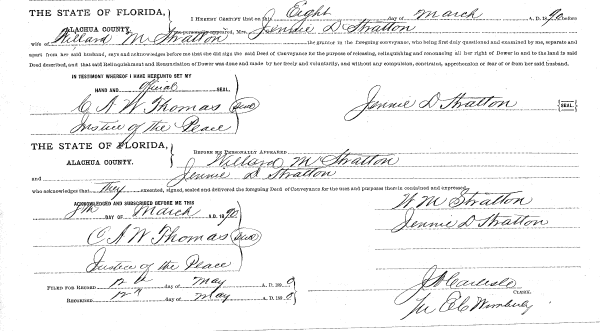 THE STATE OF FLORIDA,
ALACHUA COUNTY.
I HEREBY CERTIFY that on this Eight day of March A. D. 1890 before
me personally appeared, Mrs. Jennie D Stratton
wife of Willard M Stratton the grantor in the foregoing conveyance, who being first duly questioned and examined by me, separate and
apart from her said husband, says and acknowledges before me that she did sign the said Deed of Conveyance for the purpose of releasing, relinquishing and renouncing all her right of Dower in and to the land in said
Deed described, and that said Relinquishment and Renunciation of Dower was done and made by her freely and voluntarily, and without any compulsion, constraint, apprehension or fear of or from her said husband.
IN TESTIMONY WHEREOF I HAVE HEREUNTO SET MY
HAND AND official SEAL,
C A W Thomas (Seal)
Justice of the Peace
Jennie D Stratton [SEAL]
THE STATE OF FLORIDA,
ALACHUA COUNTY.
BEFORE ME PERSONALLY APPEARED
Willard M Stratton
and Jennie D Stratton
who acknowledges that They executed, signed, sealed and delivered the foregoing Deed of Conveyance for the uses and purposes therein contained and expressed.
ACKNOWLEDGED AND SUBSCRIBED BEFORE ME THIS
8th DAY OF March A.D. 1890
C A W Thomas (Seal)
Justice of the Peace
W M Stratton
Jennie D Stratton
FILED FOR RECORD 12th day of May A. D. 1890
RECORDED 12th day of May A. D. 1890
J A Carlisle
CLERK,
Wimberly